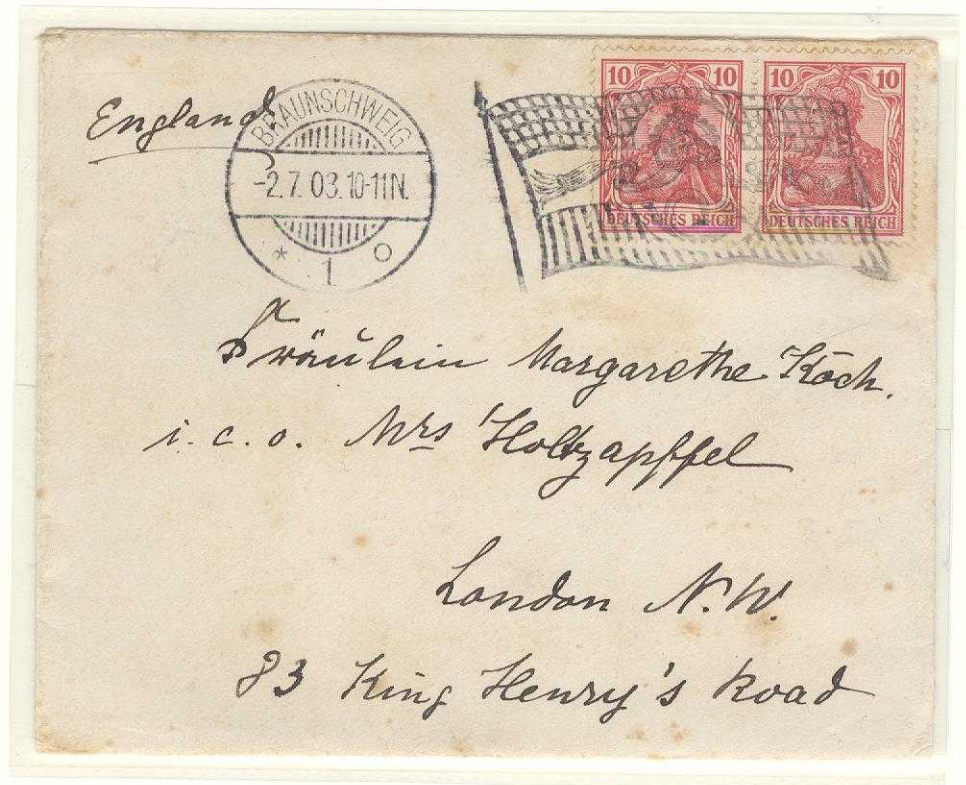 England
BRAUNSCHWEIG
-2.7.03.10-11N.
* 1 o
10 10
DEUTSCHES REICH
10 10
DEUTSCHES REICH
Fräulein Margarethe Koch.
i. c. o. Mrs Holtzapffel
London N.W.
83 King Henry's Road